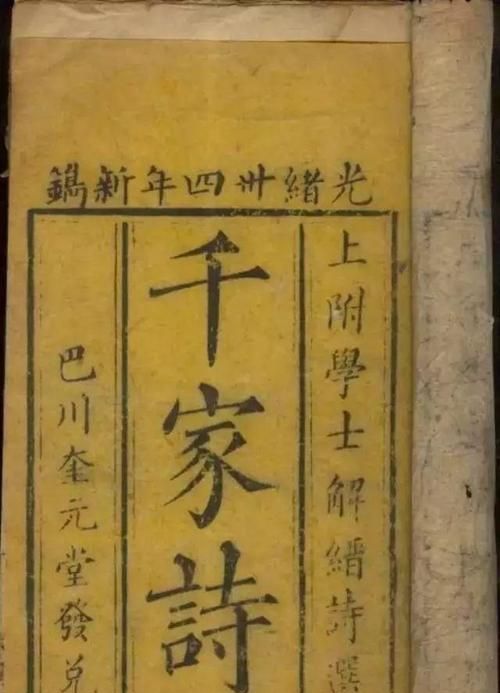 光緒卅四年新鐫
上附學士解縉詩選
千家詩
巴川奎元堂發兌